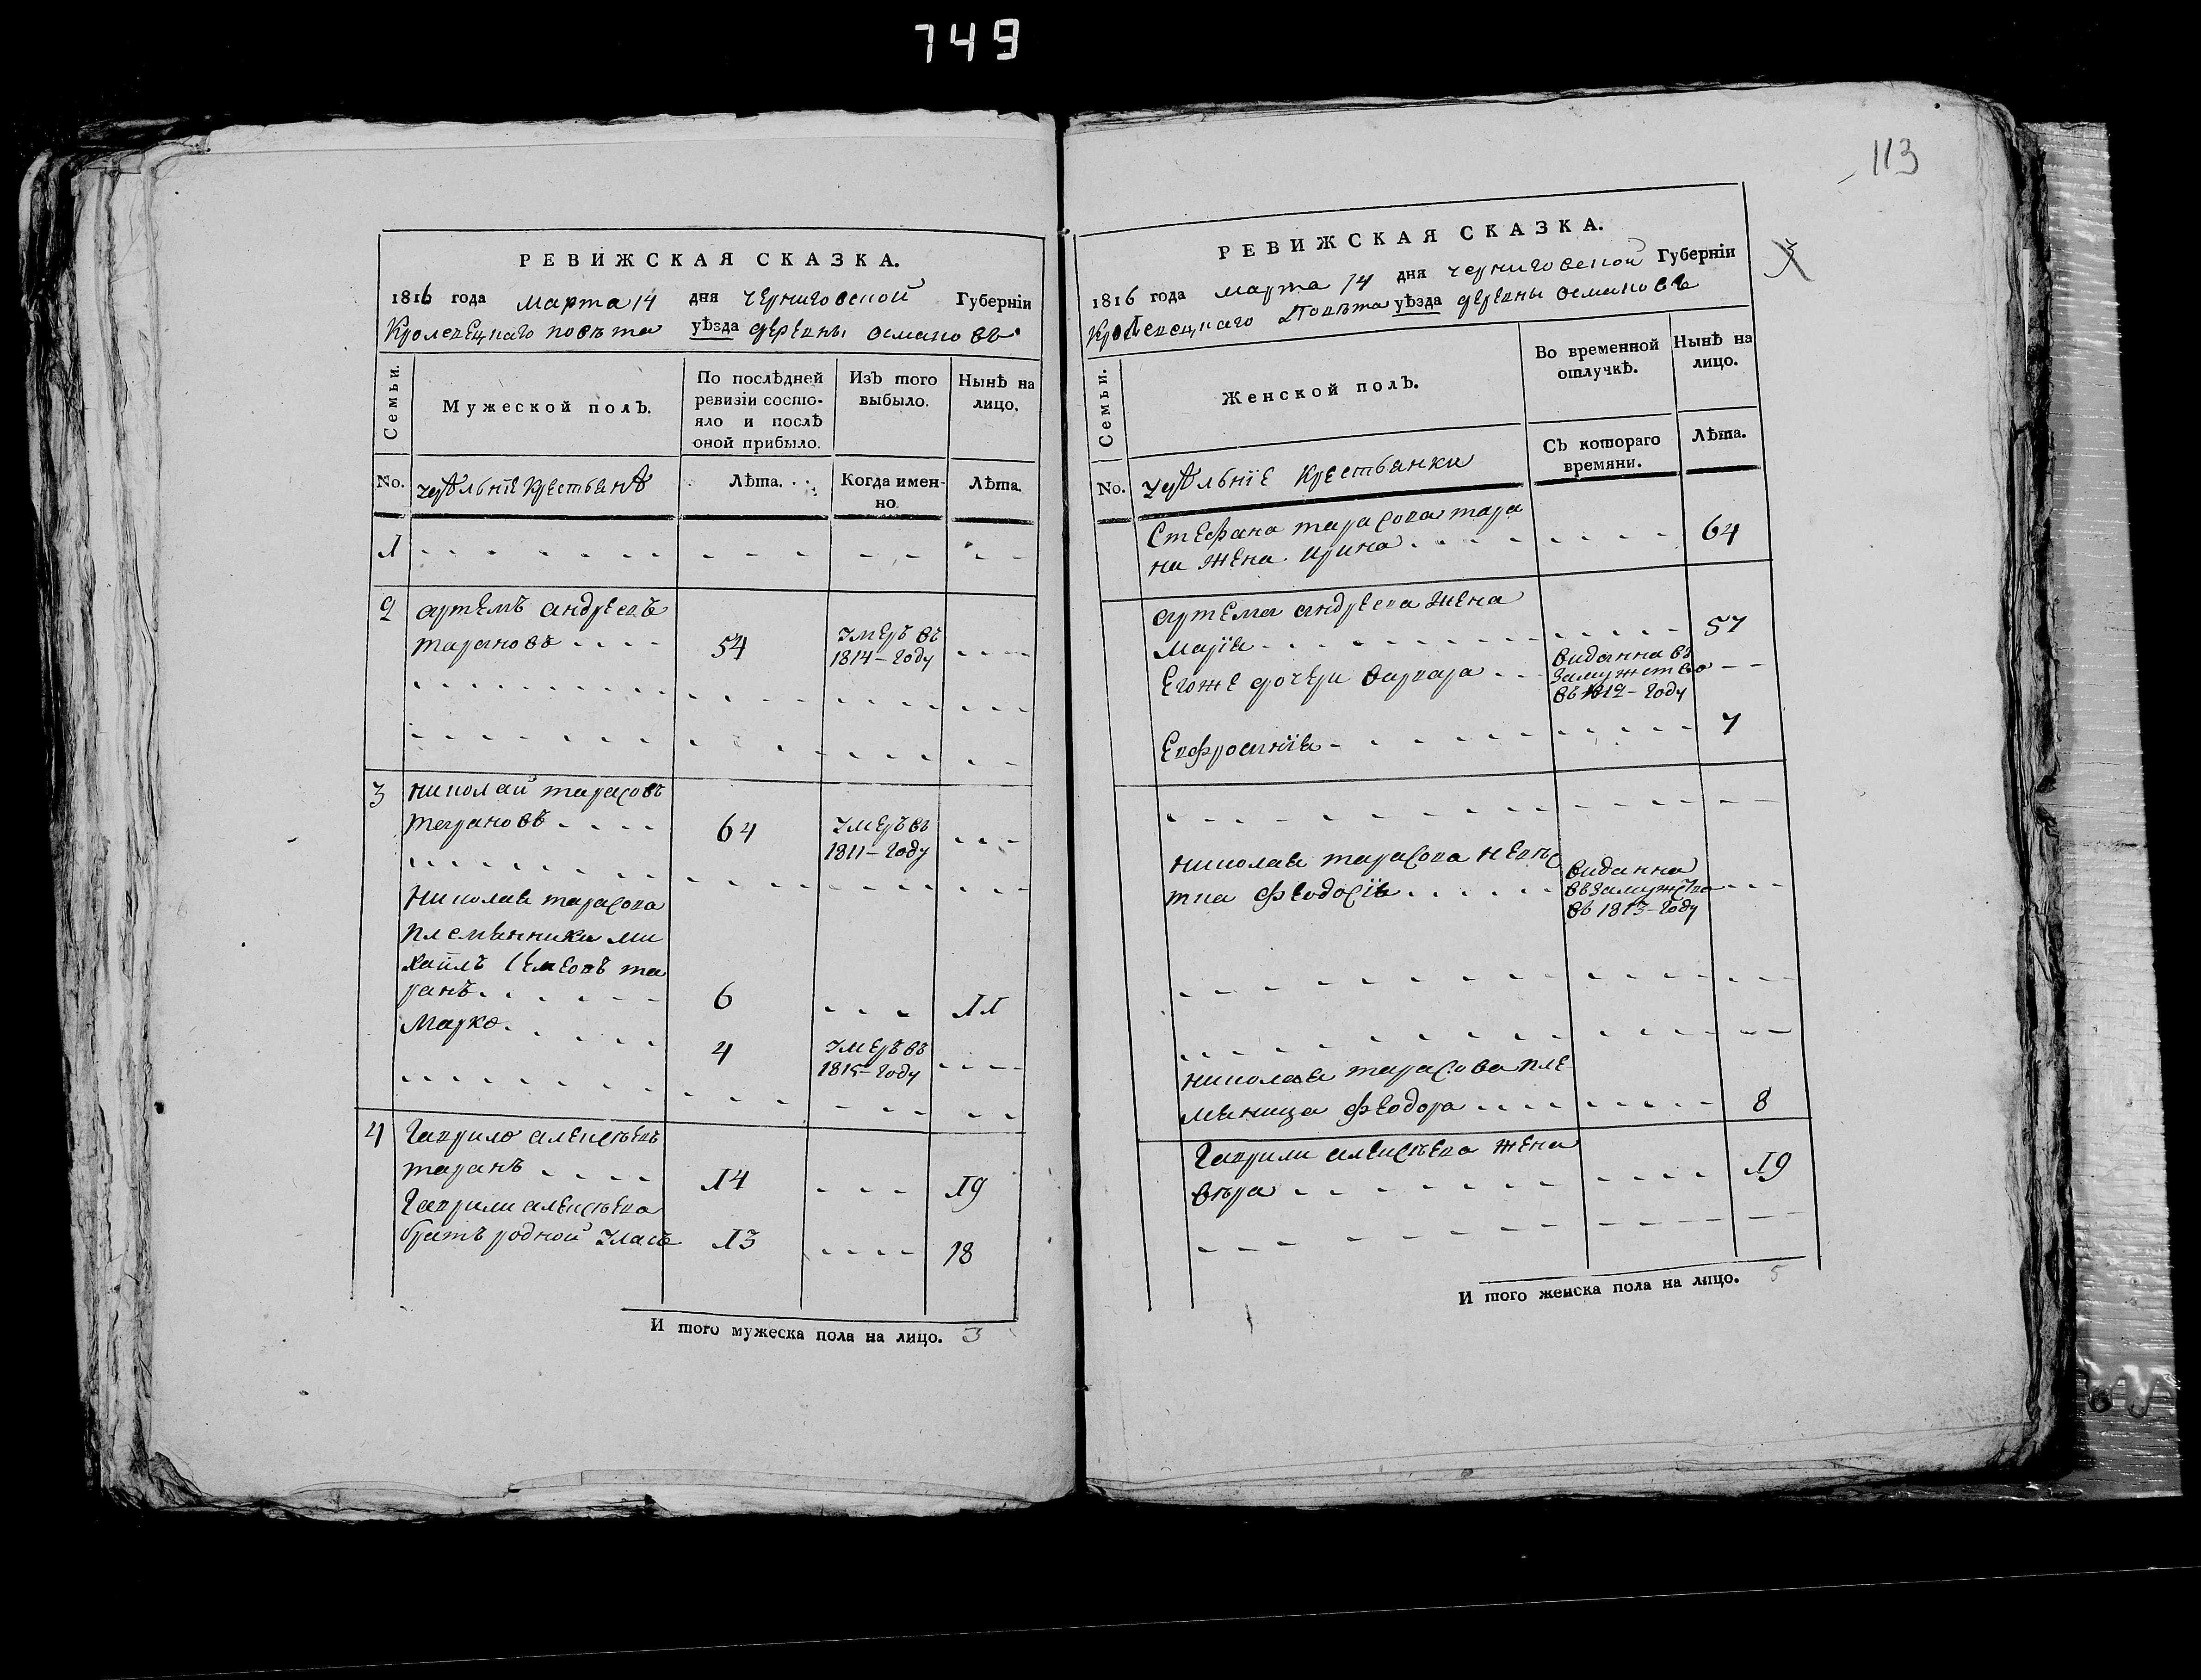 749
113
РЕВИЖСКАЯ СКАЗКА.
1816 года марта 14 дня черниговской Губерніи
Кролевецкаго повѣта уѣзда деревны османовъ
Семьи.
Мужеской полъ.
По послѣдней
ревизіи состо-
яло и послѣ
оной прибыло.
Изъ того
выбыло.
Нынѣ на
лицо.
No.
удѣльніе крестьянѣ
Лѣта.
Когда имен-
но.
Лѣта.
1
2 артемъ андреевъ
тарановъ 54 умеръ въ
1814-году
3 николай тарасовъ
тарановъ 64 умеръ въ
1811-году
николая тарасова
племянники ми
хайлъ семеовъ та
ранъ 6 11
марко 4 умеръ въ
1815-году
4 гаврило алексѣевъ
таранъ 14 19
гаврили алексѣева
братъ родной уласъ 13 18
И того мужеска пола на лицо. 3
РЕВИЖСКАЯ СКАЗКА.
1816 года марта 14 дня черниговской Губерніи
Кролевецкаго повѣта уѣзда деревны османовъ
3
Семьи.
Женской полъ.
Во временной
отлучкѣ.
Нынѣ на
лицо.
Съ котораго
времяни.
Лѣта.
No.
удѣльніе крестьянки
Стефана тарасова тара
на жена ирина 64
артема андреева жена
марія 57
егоже дочери варвара видънна въ
замужство
въ 1812-году
евфросинія 7
николая тарасова невѣс
тка феодосія виданна
въ замужства
въ 1813-году
николая тарасова пле
мяница феодора 8
гаврили алексѣева жена
вѣра 19
И того женска пола на лицо. 5